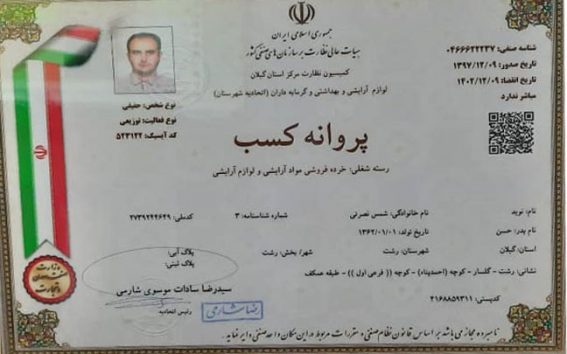 جمهوری اسلامی ایران
هیات عالی نظارت بر سازمان های صنفی کشور
کمیسیون نظارت مرکز استان گیلان
لوازم آرایشی و بهداشتی و گرمابه داران (اتحادیه شهرستان)
شناسه صنفی: ۰۴۶۶۶۲۲۲۳۷
تاریخ صدور: ۱۳۹۷/۱۲/۰۹
تاریخ انقضا: ۱۴۰۲/۱۲/۰۹
مباشر ندارد
نوع شخص: حقیقی
نوع فعالیت: توزیعی
کد آیسیک: ۵۲۳۱۲۲
پروانه کسب
رسته شغلی: خرده فروشی مواد آرایشی و لوازم آرایشی
نام: نوید نام خانوادگی: شمس نصرتی شماره شناسنامه: ۳ کدملی: ۲۷۳۹۲۴۴۶۴۹
نام پدر: حسن تاریخ تولد: ۱۳۶۲/۰۱/۰۱
استان: گیلان شهرستان: رشت شهر/ بخش: رشت پلاک آبی:
پلاک ثبتی:
نشانی: رشت - گلسار - کوچه (احمدپناه) - کوچه (( فرعی اول )) - طبقه همکف
کدپستی: ۴۱۶۸۸۵۹۳۱۱
سیدرضا سادات موسوی شارمی
رئیس اتحادیه
رضا شارمی
وزارت صنعت، معدن و تجارت
نامبرده مجاز می باشد بر اساس قانون نظام صنفی و مقررات مربوط در این مکان واحد صنفی دایر نماید.